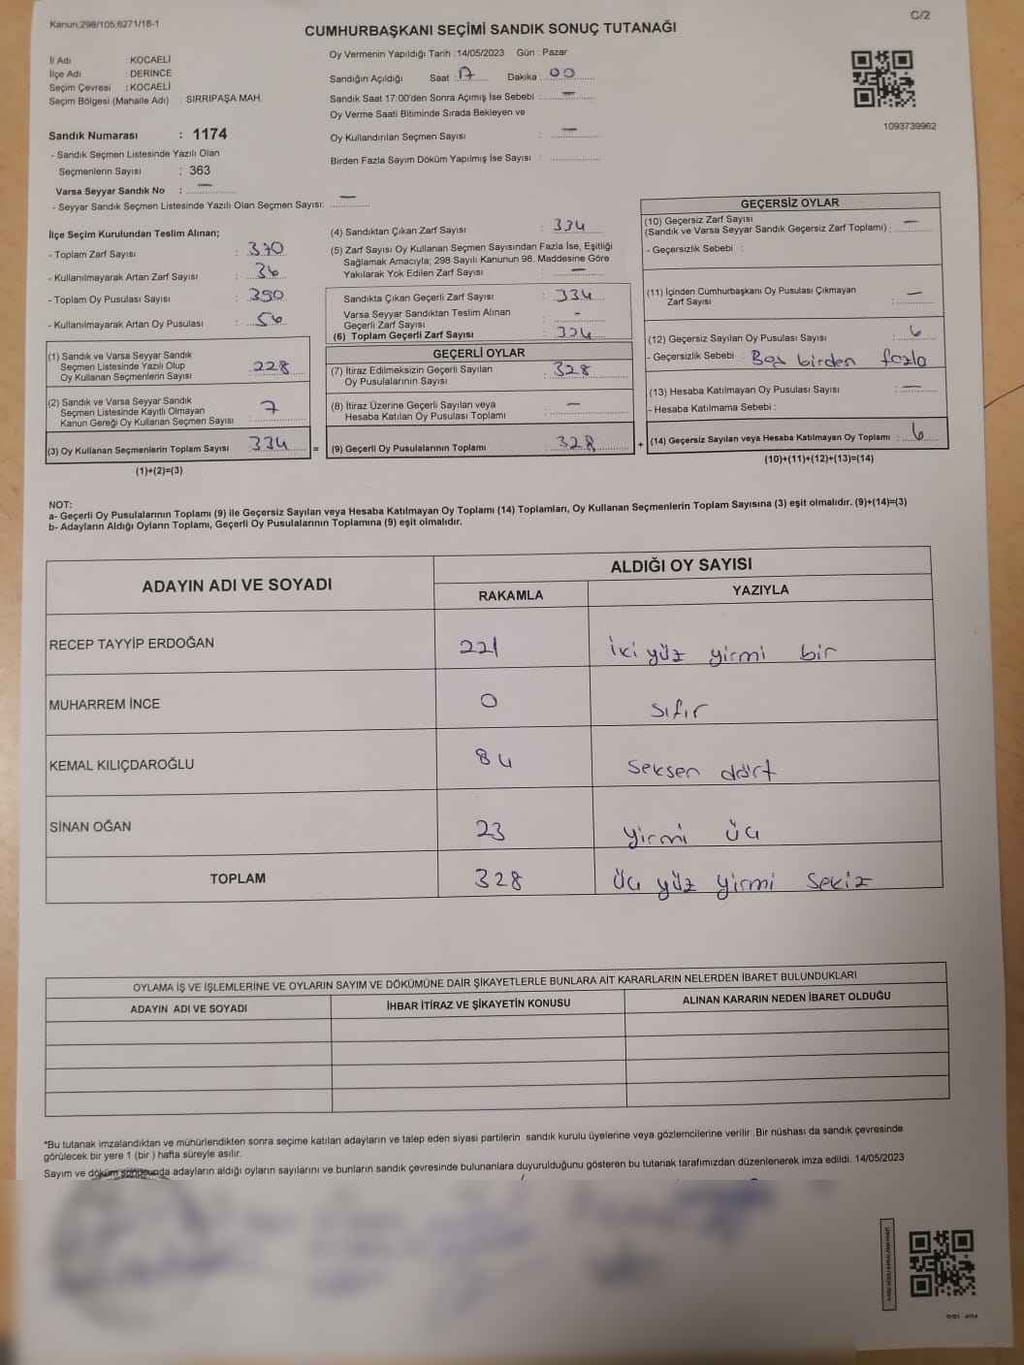 Kanun;298/105,6271/18-1
C/2
CUMHURBAŞKANI SEÇİMİ SANDIK SONUÇ TUTANAĞI
İl Adı : KOCAELİ
İlçe Adı : DERİNCE
Seçim Çevresi : KOCAELİ
Seçim Bölgesi (Mahalle Adı) SIRRIPAŞA MAH.
Sandık Numarası : 1174
- Sandık Seçmen Listesinde Yazılı Olan
Seçmenlerin Sayısı : 363
Varsa Seyyar Sandık No : —
- Seyyar Sandık Seçmen Listesinde Yazılı Olan Seçmen Sayısı: —
Oy Vermenin Yapıldığı Tarih :14/05/2023 Gün : Pazar
Sandığın Açıldığı Saat 17 Dakika : 00
Sandık Saat 17:00'den Sonra Açımış İse Sebebi : —
Oy Verme Saati Bitiminde Sırada Bekleyen ve
Oy Kullandırılan Seçmen Sayısı : —
Birden Fazla Sayım Döküm Yapılmış İse Sayısı :
1093739962
İlçe Seçim Kurulundan Teslim Alınan;
- Toplam Zarf Sayısı : 370
- Kullanılmayarak Artan Zarf Sayısı : 36
- Toplam Oy Pusulası Sayısı : 390
- Kullanılmayarak Artan Oy Pusulası : 56
(1) Sandık ve Varsa Seyyar Sandık
Seçmen Listesinde Yazılı Olup
Oy Kullanan Seçmenlerin Sayısı : 228
(2) Sandık ve Varsa Seyyar Sandık
Seçmen Listesinde Kayıtlı Olmayan
Kanun Gereği Oy Kullanan Seçmen Sayısı : 7
(3) Oy Kullanan Seçmenlerin Toplam Sayısı : 334 =
(1)+(2)=(3)
(4) Sandıktan Çıkan Zarf Sayısı : 334
(5) Zarf Sayısı Oy Kullanan Seçmen Sayısından Fazla İse, Eşitliği
Sağlamak Amacıyla; 298 Sayılı Kanunun 98. Maddesine Göre
Yakılarak Yok Edilen Zarf Sayısı : —
Sandıkta Çıkan Geçerli Zarf Sayısı : 334
Varsa Seyyar Sandıktan Teslim Alınan
Geçerli Zarf Sayısı : -
(6) Toplam Geçerli Zarf Sayısı : 334
GEÇERLİ OYLAR
(7) İtiraz Edilmeksizin Geçerli Sayılan
Oy Pusulalarının Sayısı : 328
(8) İtiraz Üzerine Geçerli Sayılan veya
Hesaba Katılan Oy Pusulası Toplamı : —
(9) Geçerli Oy Pusulalarının Toplamı : 328 +
GEÇERSİZ OYLAR
(10) Geçersiz Zarf Sayısı
(Sandık ve Varsa Seyyar Sandık Geçersiz Zarf Toplamı) : —
- Geçersizlik Sebebi :
(11) İçinden Cumhurbaşkanı Oy Pusulası Çıkmayan
Zarf Sayısı : —
(12) Geçersiz Sayılan Oy Pusulası Sayısı : 6
- Geçersizlik Sebebi : Baş birden fazla
(13) Hesaba Katılmayan Oy Pusulası Sayısı : —
- Hesaba Katılmama Sebebi :
(14) Geçersiz Sayılan veya Hesaba Katılmayan Oy Toplamı : 6
(10)+(11)+(12)+(13)=(14)
NOT:
a- Geçerli Oy Pusulalarının Toplamı (9) ile Geçersiz Sayılan veya Hesaba Katılmayan Oy Toplamı (14) Toplamları, Oy Kullanan Seçmenlerin Toplam Sayısına (3) eşit olmalıdır. (9)+(14)=(3)
b- Adayların Aldığı Oyların Toplamı, Geçerli Oy Pusulalarının Toplamına (9) eşit olmalıdır.
ADAYIN ADI VE SOYADI
ALDIĞI OY SAYISI
RAKAMLA YAZIYLA
RECEP TAYYİP ERDOĞAN 221 iki yüz yirmi bir
MUHARREM İNCE 0 sıfır
KEMAL KILIÇDAROĞLU 84 seksen dört
SİNAN OĞAN 23 yirmi üç
TOPLAM 328 üç yüz yirmi sekiz
OYLAMA İŞ VE İŞLEMLERİNE VE OYLARIN SAYIM VE DÖKÜMÜNE DAİR ŞİKAYETLERLE BUNLARA AİT KARARLARIN NELERDEN İBARET BULUNDUKLARI
ADAYIN ADI VE SOYADI İHBAR İTİRAZ VE ŞİKAYETİN KONUSU ALINAN KARARIN NEDEN İBARET OLDUĞU
*Bu tutanak imzalandıktan ve mühürlendikten sonra seçime katılan adayların ve talep eden siyasi partilerin sandık kurulu üyelerine veya gözlemcilerine verilir .Bir nüshası da sandık çevresinde
görülecek bir yere 1 (bir ) hafta süreyle asılır.
Sayım ve döküm sonucunda adayların aldığı oyların sayılarını ve bunların sandık çevresinde bulunanlara duyurulduğunu gösteren bu tutanak tarafımızdan düzenlenerek imza edildi. 14/05/2023